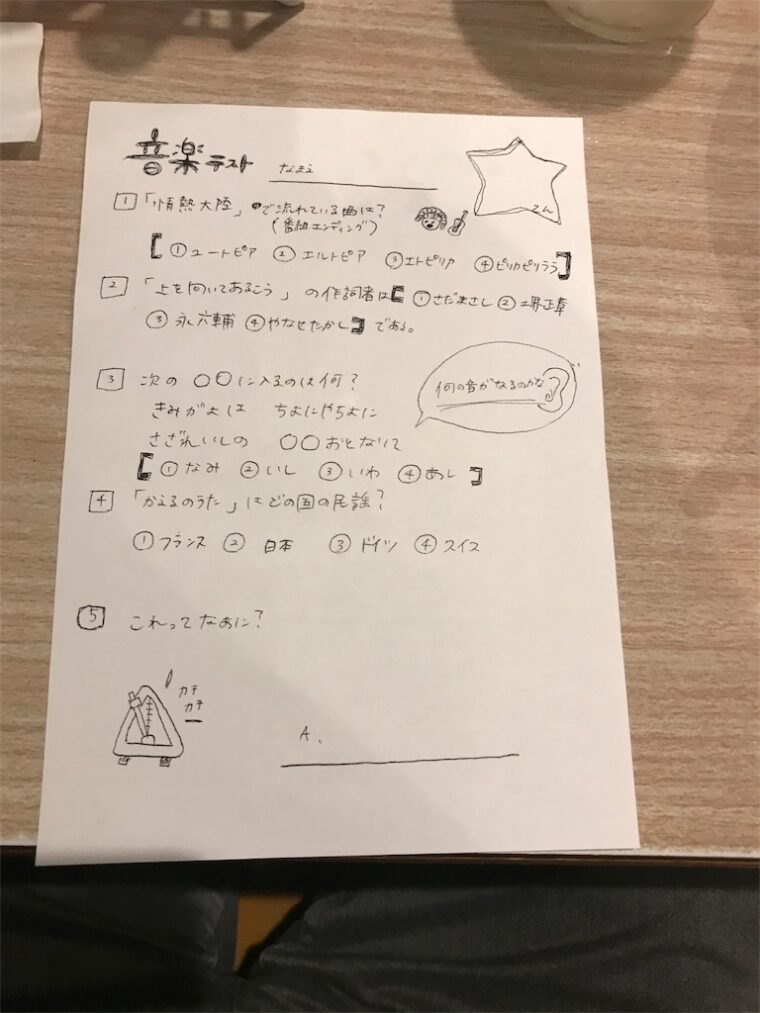 音楽テスト なまえ
てん
1 「情熱大陸」で流れている曲は?
(番組エンディング)
【①ユートピア ②エルトピア ③エトピリア ④ピリカピリララ】
2 「上を向いてあるこう」の作詞者は【①さだまさし ②堺正章
③永六輔 ④やなせたかし】である。
3 次の○○に入るのは何?
何の音がなるのかな
きみがよは ちよにやちよに
さざれいしの ○○おとなりて
【①なみ ②いし ③いわ ④あし】
4 「かえるのうた」はどの国の民謡?
①フランス ② 日本 ③ドイツ ④スイス
5 これってなあに?
カチ
カチ
A.